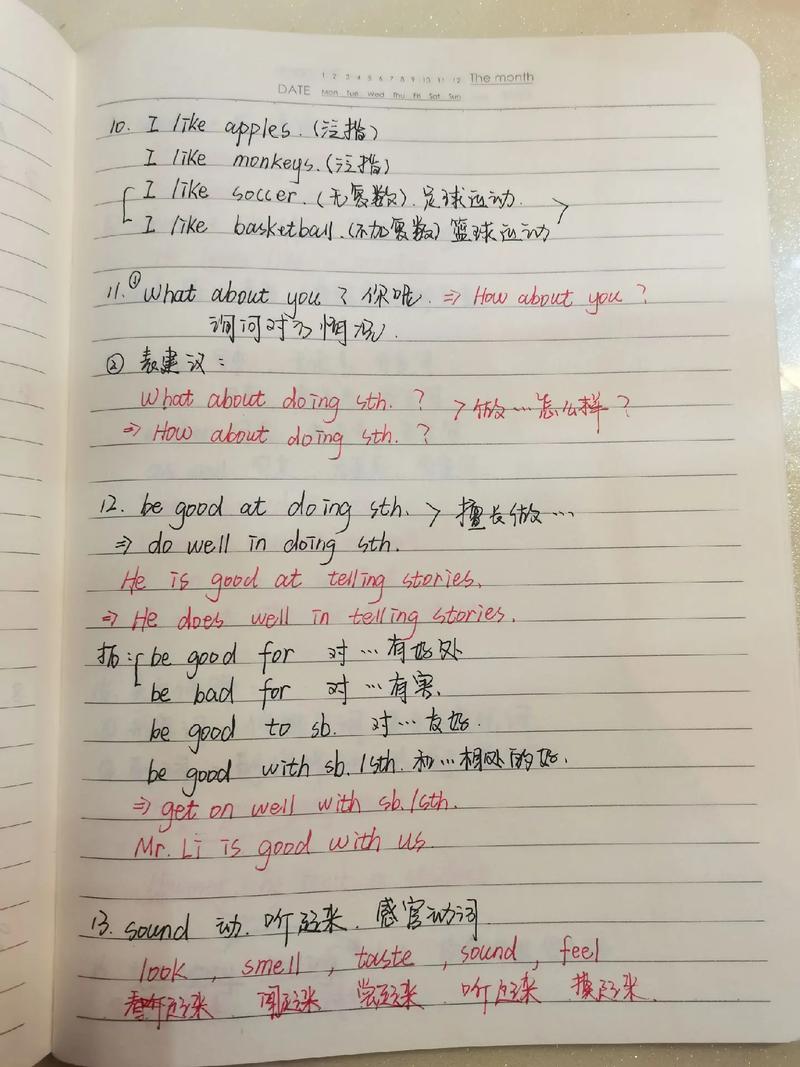 1 2 3 4 5 6 7 8 9 10 11 12 The month
DATE Mon Tue Wed Thu Fri Sat Sun
10. I like apples.(泛指)
I like monkeys.(泛指)
I like soccer.(无复数). 足球运动.
I like basketball.(不加复数) 篮球运动
11.① What about you? 你呢. ⇒ How about you?
询问对方情况.
② 表建议:
What about doing sth.? > 做…怎么样?
⇒ How about doing sth.?
12. be good at doing sth. > 擅长做…
⇒ do well in doing sth.
He is good at telling stories.
⇒ He does well in telling stories.
拓: be good for 对…有好处
be bad for 对…有害.
be good to sb. 对…友好.
be good with sb./sth. 和…相处的好.
⇒ get on well with sb./sth.
Mr. Li is good with us.
13. sound 动. 听起来. 感官动词
look, smell, taste, sound, feel
看起来 闻起来 尝起来 听起来 摸起来.